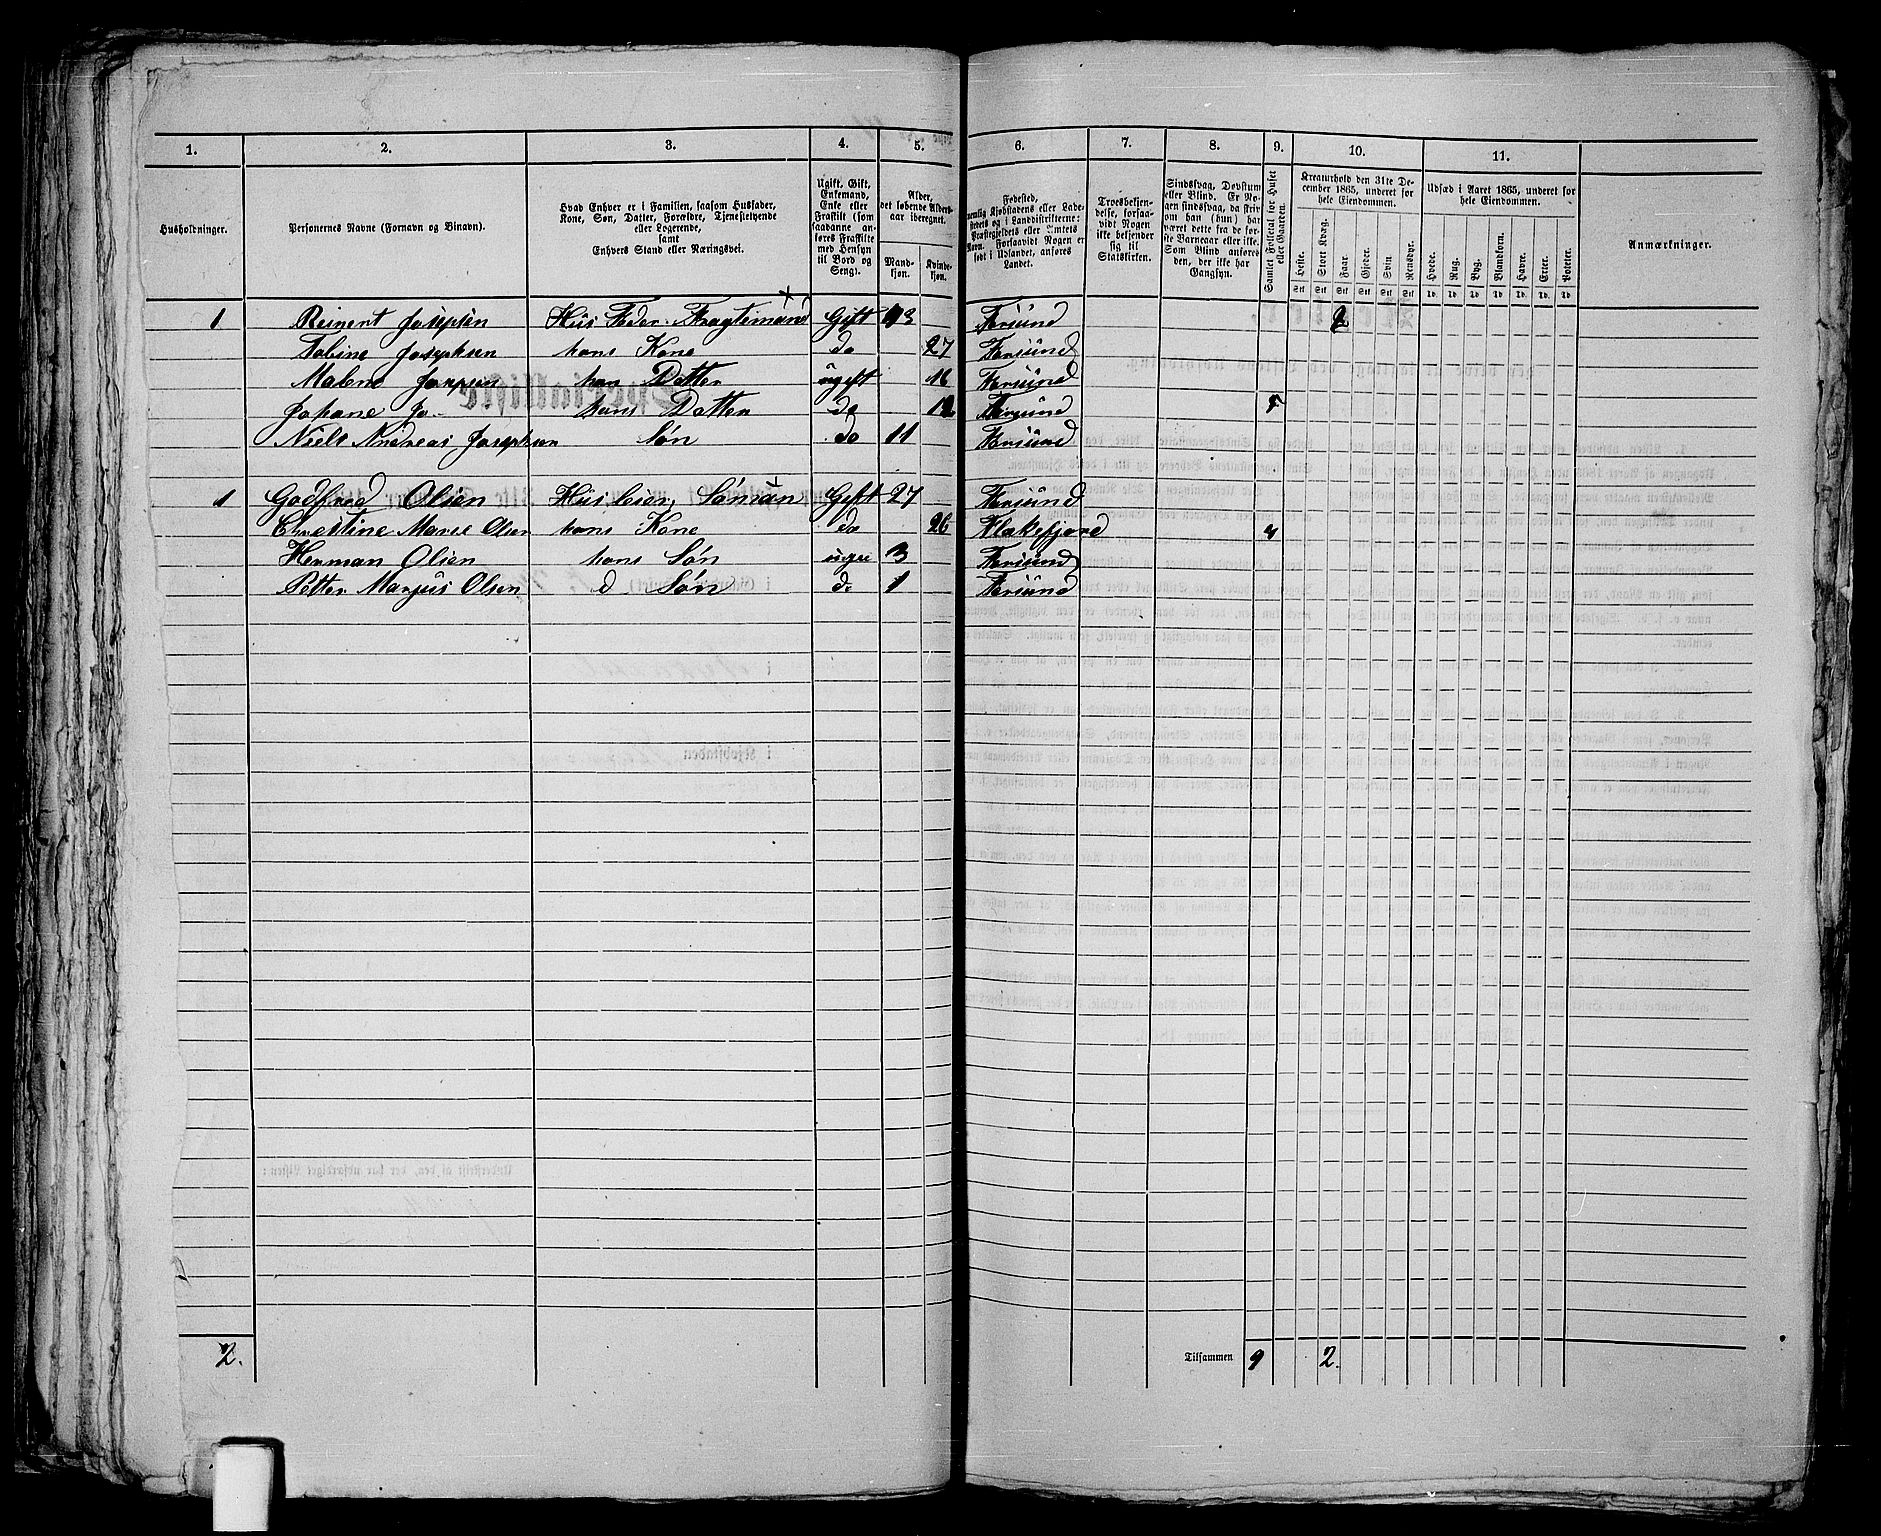 1. 2. 3. 4. 5. 6. 7. 8. 9. 10. 11.
Husholdninger.
Personernes Navne (Fornavn og Binavn).
Hvad Enhver er i Familien, saasom Husfader,
Kone, Søn, Datter, Forældre, Tjenestetyende
eller Logerende,
samt
Enhvers Stand eller Næringsvei.
Ugift, Gift,
Enkemand,
Enke eller
Fraskilt (som
saadanne an-
føres Fraskilte
med Hensyn
til Bord og
Seng).
Alder,
det løbende Alders-
aar iberegnet.
Mand-
kjøn.
Kvinde-
kjøn.
Fødested,
nemlig Kjøbstadens eller Lade-
stedets og i Landdistrikterne:
Præstegjeldets eller Amtets
Navn. Forsaavidt Nogen er
født i Udlandet, anføres
Landet.
Troesbekjen-
delse, forsaa-
vidt Nogen
ikke bekjender
sig til
Statskirken.
Sindssvag, Døvstum
eller Blind. Er No-
gen sindssvag, da friv
om han (hun) har
været dette fra de før-
ste Barneaar eller ikke.
Som Blind anføres
den, der ikke har
Gangsyn.
Samlet Folketal for Huset
eller Gaarden.
Kreaturhold den 31te De-
cember 1865, underet for
hele Eiendommen.
Heste. Stort Kvæg. Faar. Gjeder. Svin. Rensdyr.
Stk Stk Stk Stk Stk Stk
Udsæd i Aaret 1865, underet for
hele Eiendommen.
Hvede. Rug. Byg. Blandkorn. Havre. Erter. Poteter.
Td. Td. Td. Td. Td. Td. Td
Anmærkninger.
1 Reinert Josepsen Hüs Fader Fragtemand Gift 43 Farsund 2
Tobine Josephsen hans Kone do 27 Farsund
Malene Josepsen hans Datter ugeft 16 Farsund
Johane Jo. hans Datter do 12 Farsund 5
Niels Andreas Josephsen Søn do 11 Farsund
1 Godfred Olsen Hüs leier, Sømän Geft 27 Farsund
Christine Marie Olsen hans Kone do 26 Flakefjord 4
Herman Olsen hans Søn uge 3 Farsund
Petter Marjus Olsen d Søn do 1 Farsund
2. Tilsammen 9 2.